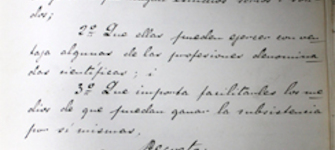 dos;
2º Que ellas pueden ejercer con ven-
taja algunas de las profesiones denomina
das científicas; i
3º Que importa facilitarles los me
dios de que puedan ganar la subsistencia
por sí mismas,
Decreto: